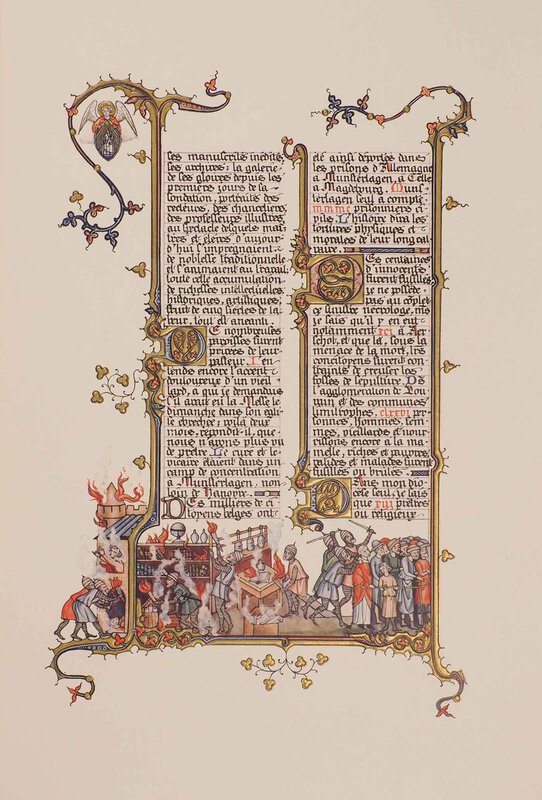 ses manuscrits inédits,
ses archives; la galerie
de ses gloires depuis les
premières jours de sa
fondation, portraits des
recteurs, des chanceliers,
des professeurs illustres,
au spectacle desquels maî-
tres et élèves d'aujour-
d'hui s'imprégnaient
de noblesse traditionnelle
et s'animaient au travail
toute cette accumulation
de richesses intellectuelles,
historiques, artistiques,
fruit de cinq siècles de la-
beur, tout est anéanti.
De nombreuses
paroisses furent
privées de leur
pasteur. J'en-
tends encore l'accent
douloureux d'un vieil-
lard, à qui je demandais
s'il avait eu la Messe le
dimanche dans son égli-
se ébréchée; voilà deux
mois, répondit-il, que
nous n'avons plus vu
de prêtre. Le curé et le
vicaire étaient dans un
camp de concentration
à Munsterlagen, non
loin de Hanovre.
Des milliers de ci-
toyens belges ont
été ainsi déportés dans
les prisons d'Allemagne
à Munsterlagen, à Celle
à Magdeburg. Muns-
terlagen seul a compté
mmmc prisonniers ci-
vils. L'histoire dira les
tortures physiques et
morales de leur long cal-
vaire.
Des centaines
d'innocents
furent fusillés
je ne possède
pas au complet
ce sinistre nécrologe, mais
je sais qu'il y en eut
notamment xci à Aer-
schot, et que là, sous la
menace de la mort, les
concitoyens furent con-
traints de creuser les
fosses de sépulture. Da
l'agglomération de Lou-
vain et des communes
limitrophes, clxxvi per-
sonnes, hommes, fem-
mes, vieillards et nour-
rissons encore à la ma-
melle, riches et pauvres
valides et malades furent
fusillés ou brûlés.
Dans mon dio-
cèse seul, je sais
que xiii prêtres
ou religieux